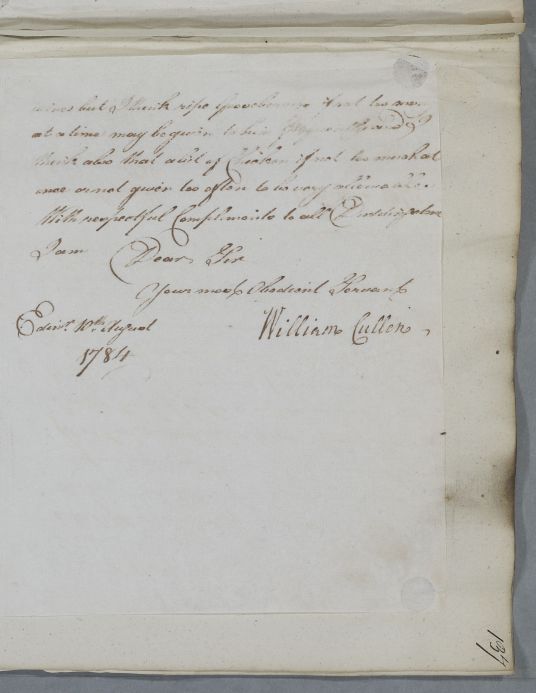 but I think ripe Gooseberries if not too many
at a time may be given to him I
think also that a bit of Chicken if not too much at
once or not given too often to be very allowable.
With respectful Compliments to all
I am Dear Sir
Your most Obedient Servant
Edinr. 10th August William Cullen
1784
134